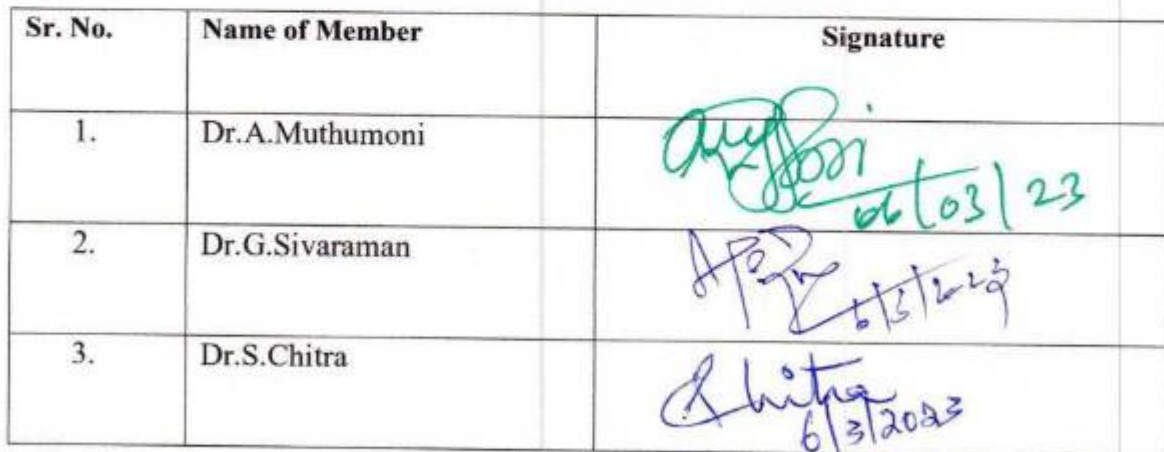 Sr. No. Name of Member Signature
1. Dr.A.Muthumoni
06/03/23
2. Dr.G.Sivaraman
6/3/2023
3. Dr.S.Chitra
Chitra
6/3/2023